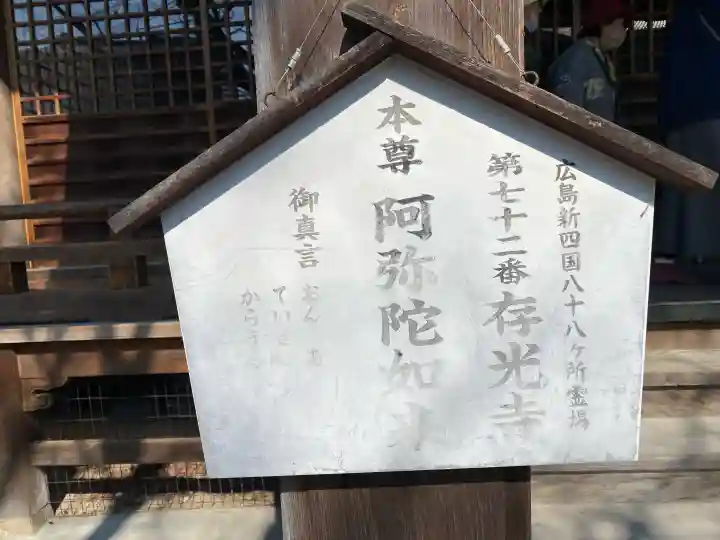 広島新四国八十八ヶ所霊場
第七十二番存光寺
本尊 阿弥陀如来
御真言 おん あ
てい
から